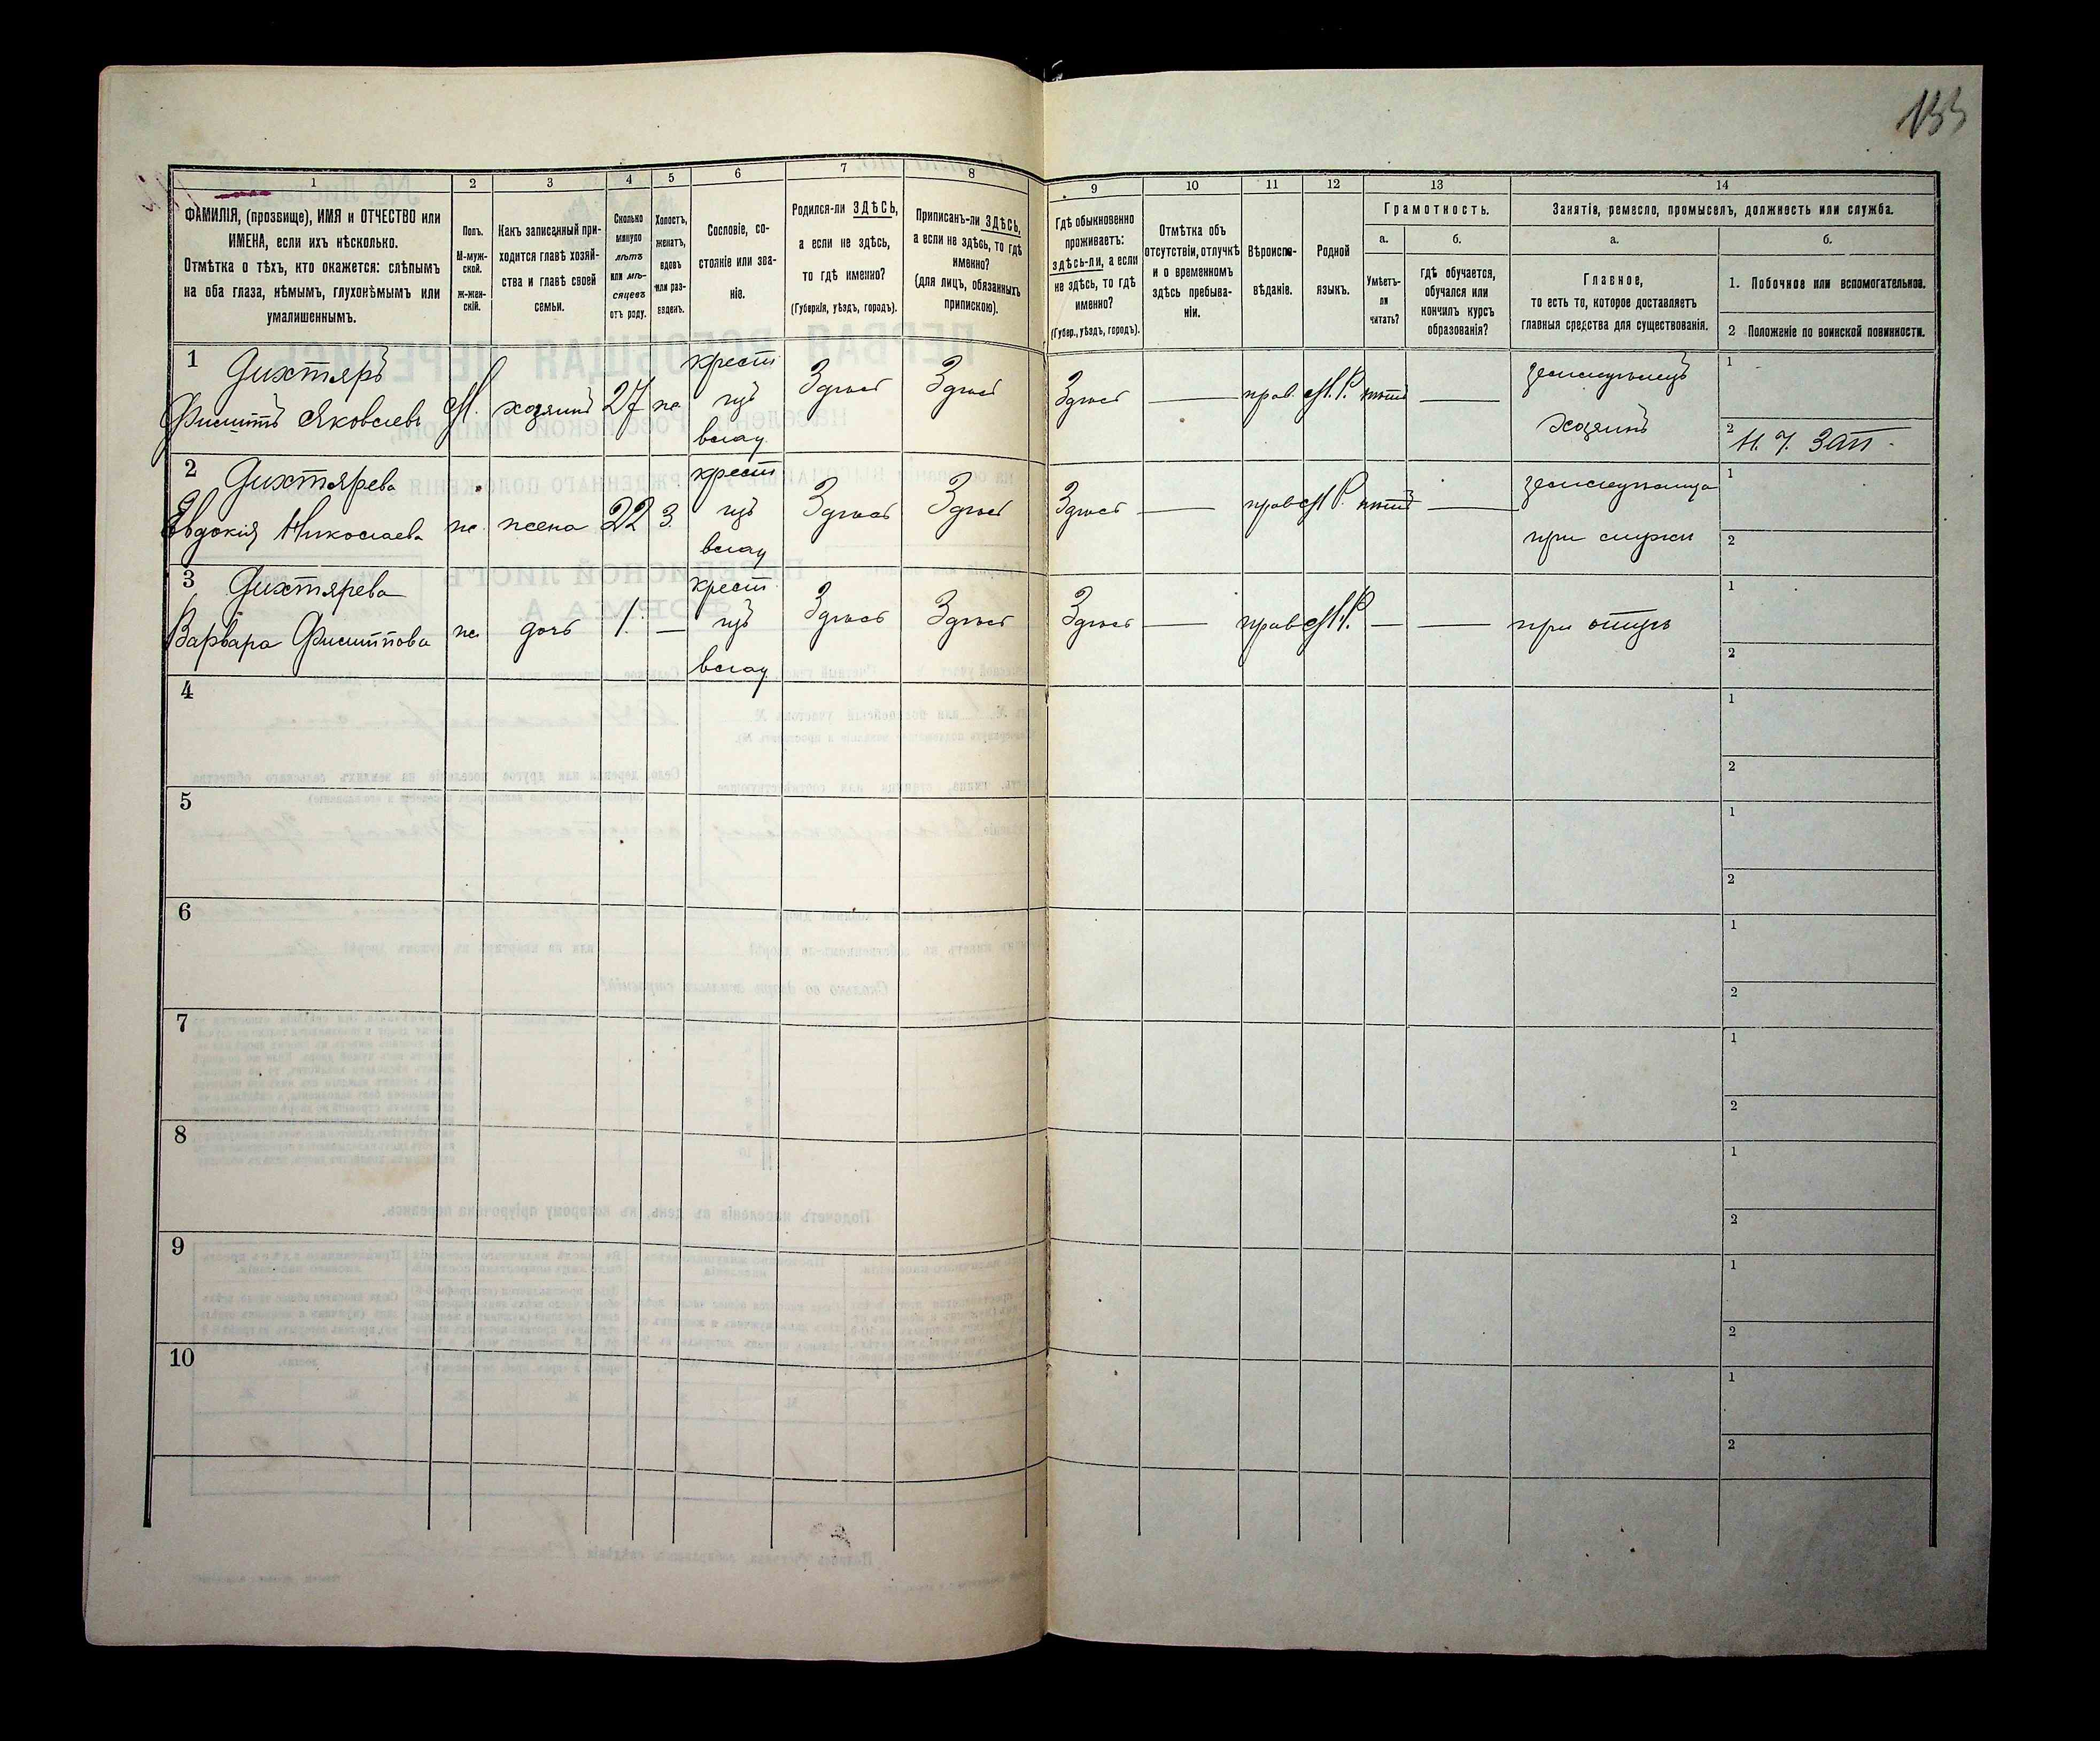 133
1
ФАМИЛІЯ, (прозвище), ИМЯ и ОТЧЕСТВО или
ИМЕНА, если ихъ нѣсколько.
Отмѣтка о тѣхъ, кто окажется: слѣпымъ
на оба глаза, нѣмымъ, глухонѣмымъ или
умалишеннымъ.
2
Полъ.
М-муж-
ской.
Ж-жен-
скій.
3
Какъ записанный при-
ходится главѣ хозяй-
ства и главѣ своей
семьи.
4
Сколько
минуло
лѣтъ
или мѣ-
сяцевъ
отъ роду.
5
Холостъ,
женатъ,
вдовъ
или раз-
веденъ.
6
Сословіе, со-
стояніе или зва-
ніе.
7
Родился-ли ЗДѢСЬ,
а если не здѣсь,
то гдѣ именно?
(Губернія, уѣздъ, городъ).
8
Приписанъ-ли ЗДѢСЬ,
а если не здѣсь, то гдѣ
именно?
(для лицъ, обязанныхъ
припискою).
9
Гдѣ обыкновенно
проживаетъ:
здѣсь-ли, а если
не здѣсь, то гдѣ
именно?
(Губер., уѣздъ, городъ).
10
Отмѣтка объ
отсутствіи, отлучкѣ
и о временномъ
здѣсь пребыва-
ніи.
11
Вѣроиспо-
вѣданіе.
12
Родной
языкъ.
13
Грамотность.
а.
Умѣетъ-
ли
читать?
б.
гдѣ обучается,
обучался или
кончилъ курсъ
образованія?
14
Занятіе, ремесло, промыселъ, должность или служба.
а.
Главное,
то есть то, которое доставляетъ
главныя средства для существованія.
б.
1. Побочное или вспомогательное.
2 Положеніе по воинской повинности.
1 Дихтяръ
Филиппъ Яковлевъ М. хозяинъ 27 ж. крест изъ влад Здѣсь Здѣсь Здѣсь — прав. М.Р. нѣтъ — земледѣлецъ
хозяинъ
1
2 Н. Ч. Зап.
2 Дихтярева
Евдокія Николаева ж. жена 22 З. крест изъ влад Здѣсь Здѣсь Здѣсь — прав М.Р. нѣтъ —
при мужи
1
2
3 Дихтярева
Варвара Филиппова ж. дочь 1. — крест изъ влад Здѣсь Здѣсь Здѣсь — прав М.Р. — — при отцѣ
1
2
4
1
2
5
1
2
6
1
2
7
1
2
8
1
2
9
1
2
10
1
2